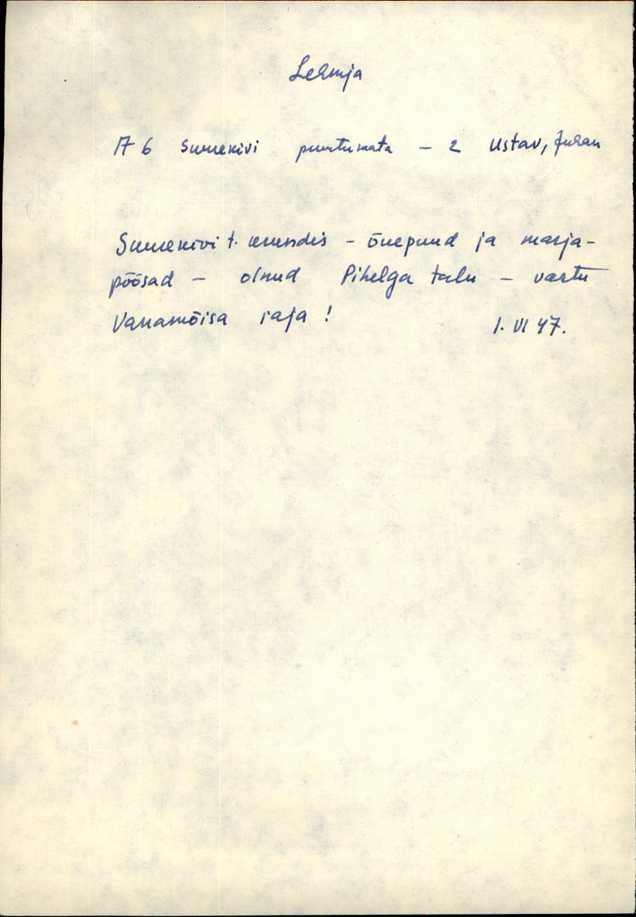 Lehmja
A 6 Surnekivi puutumata – 2 Ustav, Juhan
Surnekivi t. kundis – õuepuud ja marja-
põõsad – olnud Pihelga talu – vastu
Vanamõisa raja !
1. VI 47.